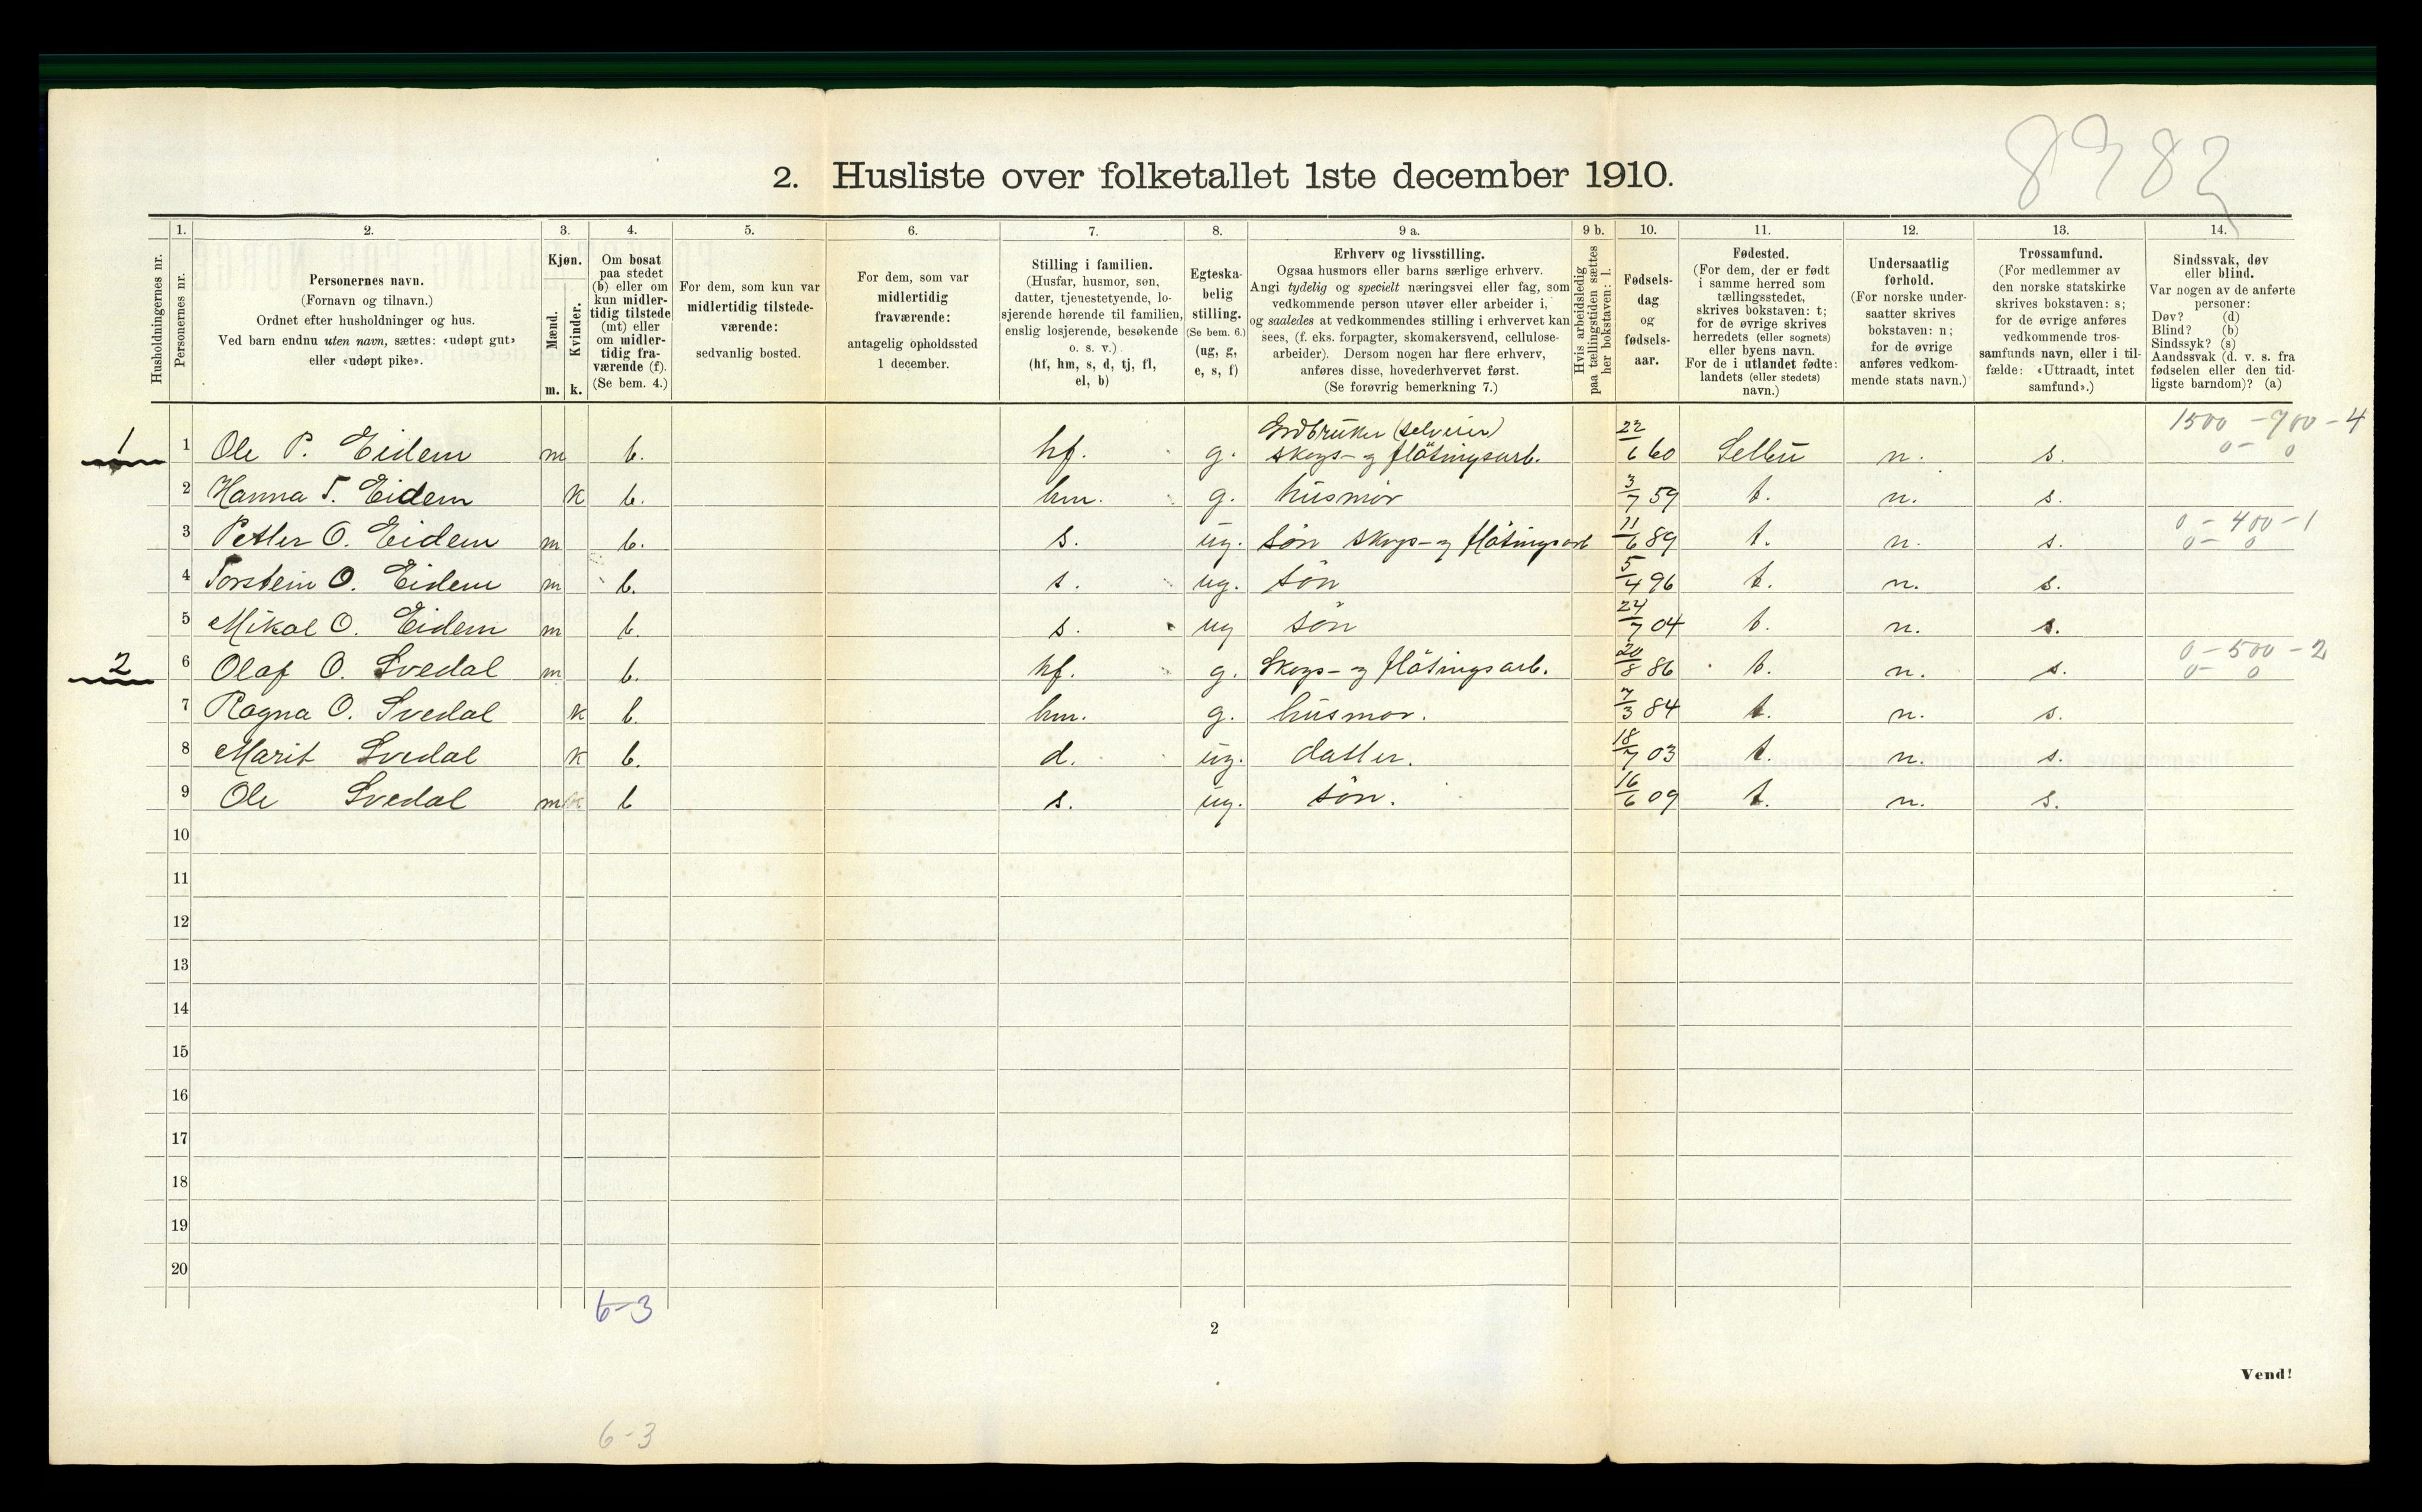 8982
2. Husliste over folketallet 1ste december 1910.
Husholdningernes nr.
1. Personernes nr.
2. Personernes navn.
(Fornavn og tilnavn.)
Ordnet efter husholdninger og hus.
Ved barn endnu uten navn, sættes: «udøpt gut»
eller «udøpt pike».
3. Kjøn.
Mænd. m.
Kvinder. k.
4. Om bosat
paa stedet
(b) eller om
kun midler-
tidig tilstede
(mt) eller
om midler-
tidig fra-
værende (f).
(Se bem. 4.)
5. For dem, som kun var
midlertidig tilstede-
værende:
sedvanlig bosted.
6. For dem, som var
midlertidig
fraværende:
antagelig opholdssted
1 december.
7. Stilling i familien.
(Husfar, husmor, søn,
datter, tjenestetyende, lo-
sjerende hørende til familien,
enslig losjerende, besøkende
o. s. v.)
(hf, hm, s, d, tj, fl,
el, b)
8. Egteska-
belig
stilling.
(Se bem. 6.)
(ug, g,
e, s, f)
9 a. Erhverv og livsstilling.
Ogsaa husmors eller barns særlige erhverv.
Angi tydelig og specielt næringsvei eller fag, som
vedkommende person utøver eller arbeider i,
og saaledes at vedkommendes stilling i erhvervet kan
sees, (f. eks. forpagter, skomakersvend, cellulose-
arbeider). Dersom nogen har flere erhverv,
anføres disse, hovederhvervet først.
(Se forøvrig bemerkning 7.)
9 b. Hvis arbeidsledig
paa tællingstiden sættes
her bokstaven: l.
10. Fødsels-
dag
og
fødsels-
aar.
11. Fødested.
(For dem, der er født
i samme herred som
tællingsstedet,
skrives bokstaven: t;
for de øvrige skrives
herredets (eller sognets)
eller byens navn.
For de i utlandet fødte:
landets (eller stedets)
navn.)
12. Undersaatlig
forhold.
(For norske under-
saatter skrives
bokstaven: n;
for de øvrige
anføres vedkom-
mende stats navn.)
13. Trossamfund.
(For medlemmer av
den norske statskirke
skrives bokstaven: s;
for de øvrige anføres
vedkommende tros-
samfunds navn, eller i til-
fælde: «Uttraadt, intet
samfund».)
14. Sindssvak, døv
eller blind.
Var nogen av de anførte
personer:
Døv? (d)
Blind? (b)
Sindssyk? (s)
Aandssvak (d. v. s. fra
fødselen eller den tid-
ligste barndom)? (a)
1500 - 700 - 4
0 - 0
1 1 Ole P. Eidem m b. hf. g. Jrdbruker (selveier) skogs- og flötningsarb. 22/6 60 Selbu n. s.
2 Hanna T. Eidem k b. hm. g. husmor 3/7 59 t. n. s.
0 - 400 - 1
0 - 0
3 Petter O. Eidem m b. s. ug. sön skogs- og flötningsarb 11/6 89 t. n. s.
4 Torstein O. Eidem m b. s. ug. sön 5/4 96 t. n. s.
5 Mikal O. Eidem m b. s. ug sön 24/7 04 t. n. s.
0 - 500 - 2
0 - 0
2 6 Olaf O. Svedal m b. hf. g. Skogs- og flötningsarb. 20/8 86 t. n. s.
7 Ragna O. Svedal k b. hm. g. husmor. 7/3 84 t. n. s.
8 Marit Svedal k b. d. ug. datter. 18/7 03 t. n. s.
9 Ole Svedal m k b s. ug. sön. 16/6 09 t. n. s.
10
11
12
13
14
15
16
17
18
19
20
6-3
2
Vend!
6-3